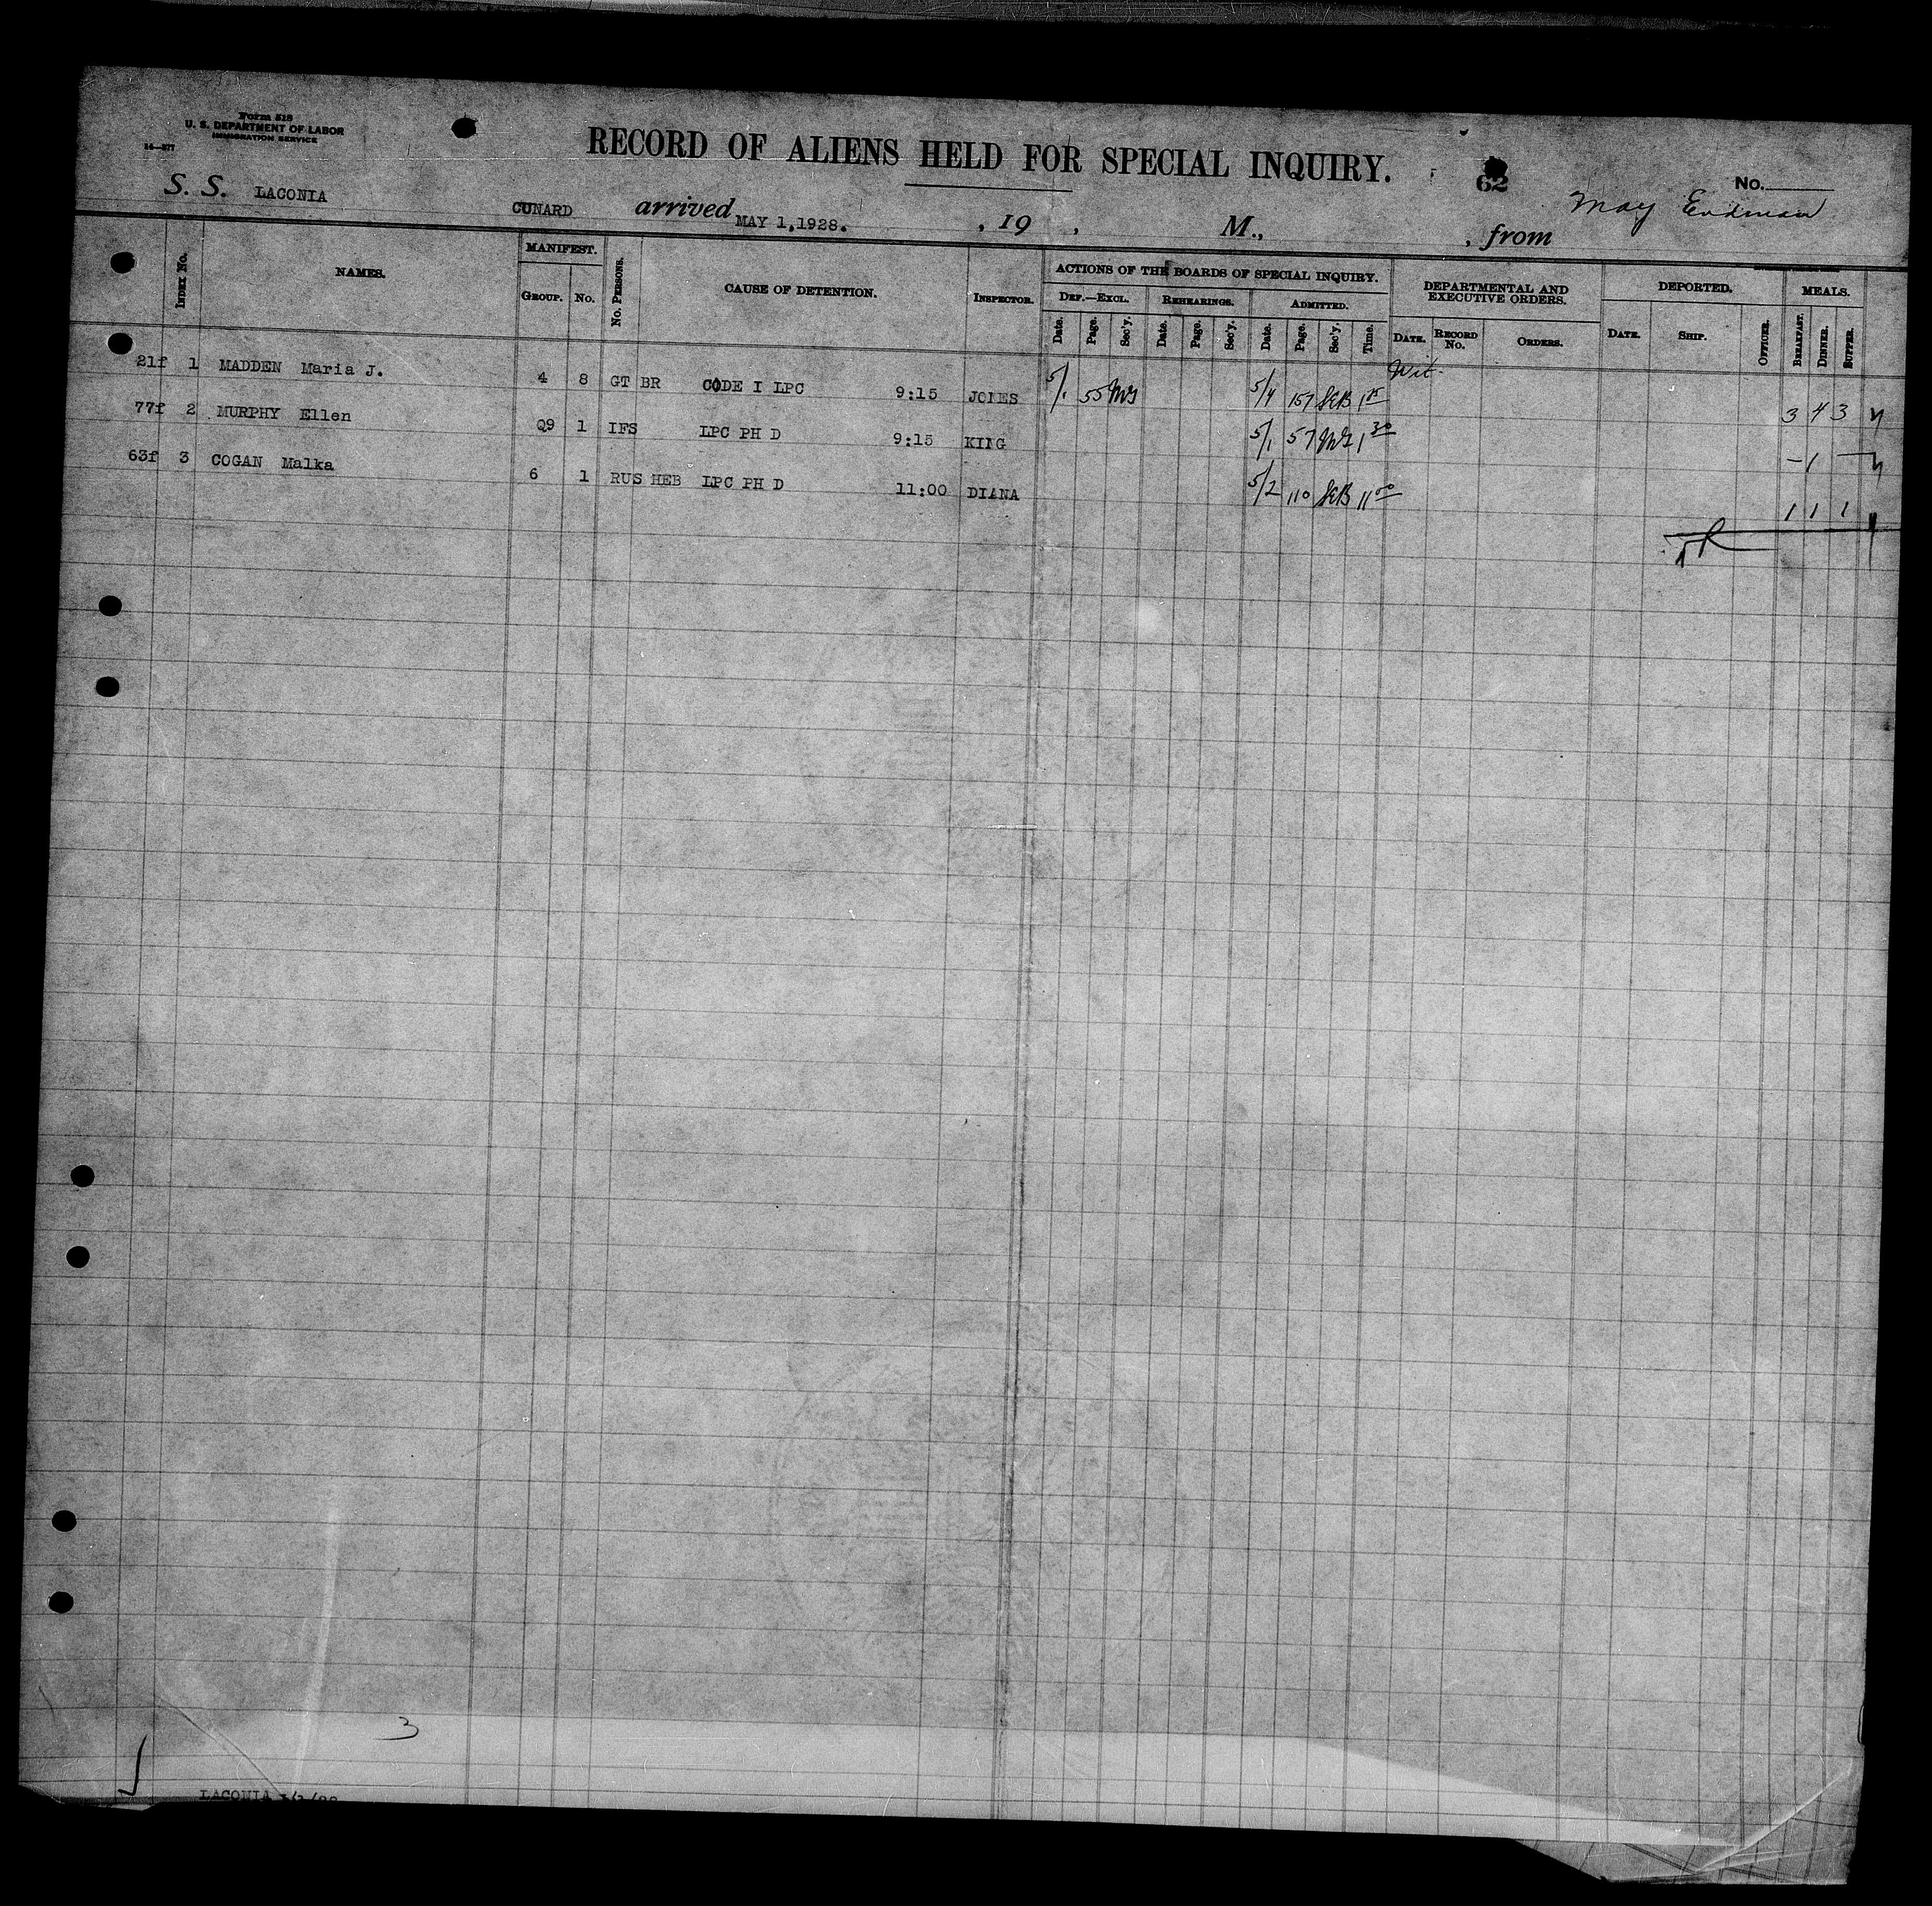 Form 518
U. S. DEPARTMENT OF LABOR
IMMIGRATION SERVICE
14—577
RECORD OF ALIENS HELD FOR SPECIAL INQUIRY.
62
No.
S. S. LACONIA CUNARD arrived MAY 1,1928. , 19 , M., , from
May
INDEX No. NAMES. MANIFEST. GROUP. No. No. PERSONS. CAUSE OF DETENTION. INSPECTOR.
ACTIONS OF THE BOARDS OF SPECIAL INQUIRY. DEPARTMENTAL AND EXECUTIVE ORDERS. DEPORTED. MEALS.
DEF.—EXCL. REHEARINGS. ADMITTED.
Date. Page. Sec'y. Date. Page. Sec'y. Date. Page. Sec'y. Time. DATE. RECORD No. ORDERS. DATE. SHIP. OFFICER. BREAKFAST. DINNER. SUPPER.
21f 1 MADDEN Maria J. 4 8 GT BR CODE I LPC 9:15 JONES 5/1 55 5/4 157 SEB 1 15 Wit. 3 4 3
77f 2 MURPHY Ellen Q9 1 IFS LPC PH D 9:15 KING 5/1 57 1 30 - 1 -
63f 3 COGAN Malka 6 1 RUS HEB LPC PH D 11:00 DIANA 5/2 110 SEB 11 00 1 1 1
3
LACONIA